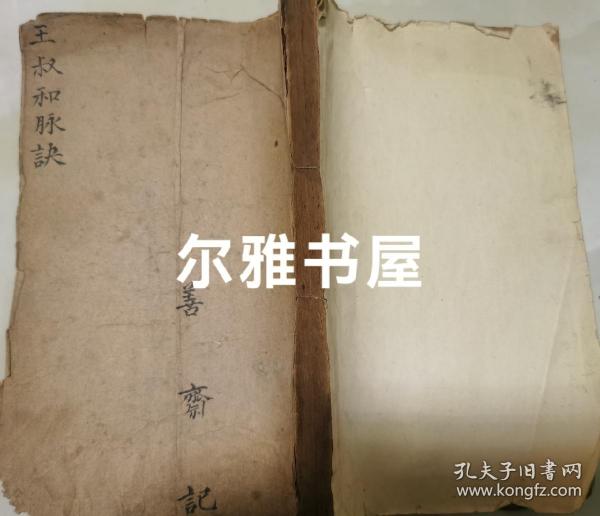 王叔和脉訣
善齋記
尔雅书屋
孔夫子旧书网
www.kongfz.com